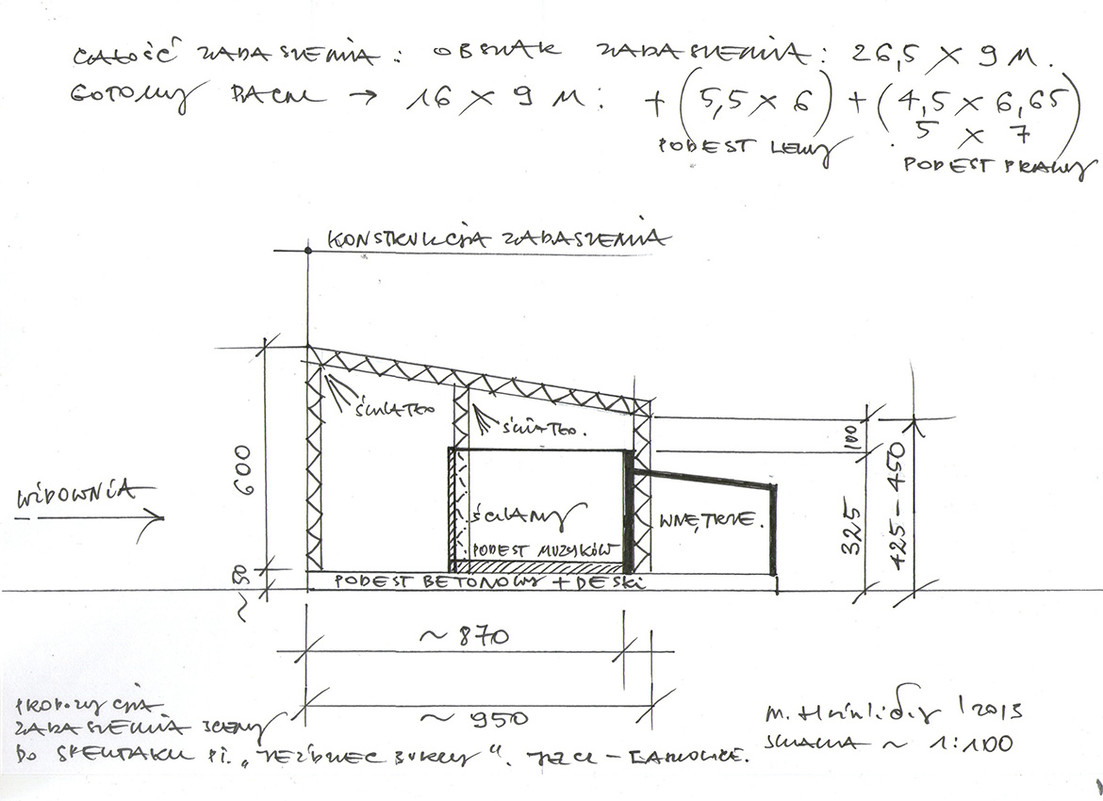 CAŁOŚĆ ZADASZENIA: OBSZAR ZADASZENIA: 26,5 X 9 M.
GOTOWY DACH → 16 X 9 M: + (5,5 X 6) + (4,5 X 6,65
5 X 7)
PODEST LEWY
PODEST PRAWY
KONSTRUKCJA ZADASZENIA
ŚWIATŁO
ŚWIATŁO.
600
100
WIDOWNIA
ŚCIANY
WNĘTRZE.
325
425-450
PODEST MUZYKÓW
~50
PODEST BETONOWY + DESKI
~870
~950
PROPOZYCJA
ZADASZENIA SCENY
DO SPEKTAKLU PT. „ ".
M. /2013
SKALA ~ 1:100